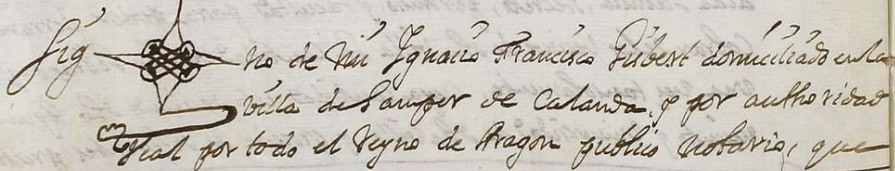 Sig no de mi Ygnacio Francisco Gisbert domiciliado en la
villa de Samper de Calanda, y por authoridad
Real por todo el Reyno de Aragon publico Notario, que